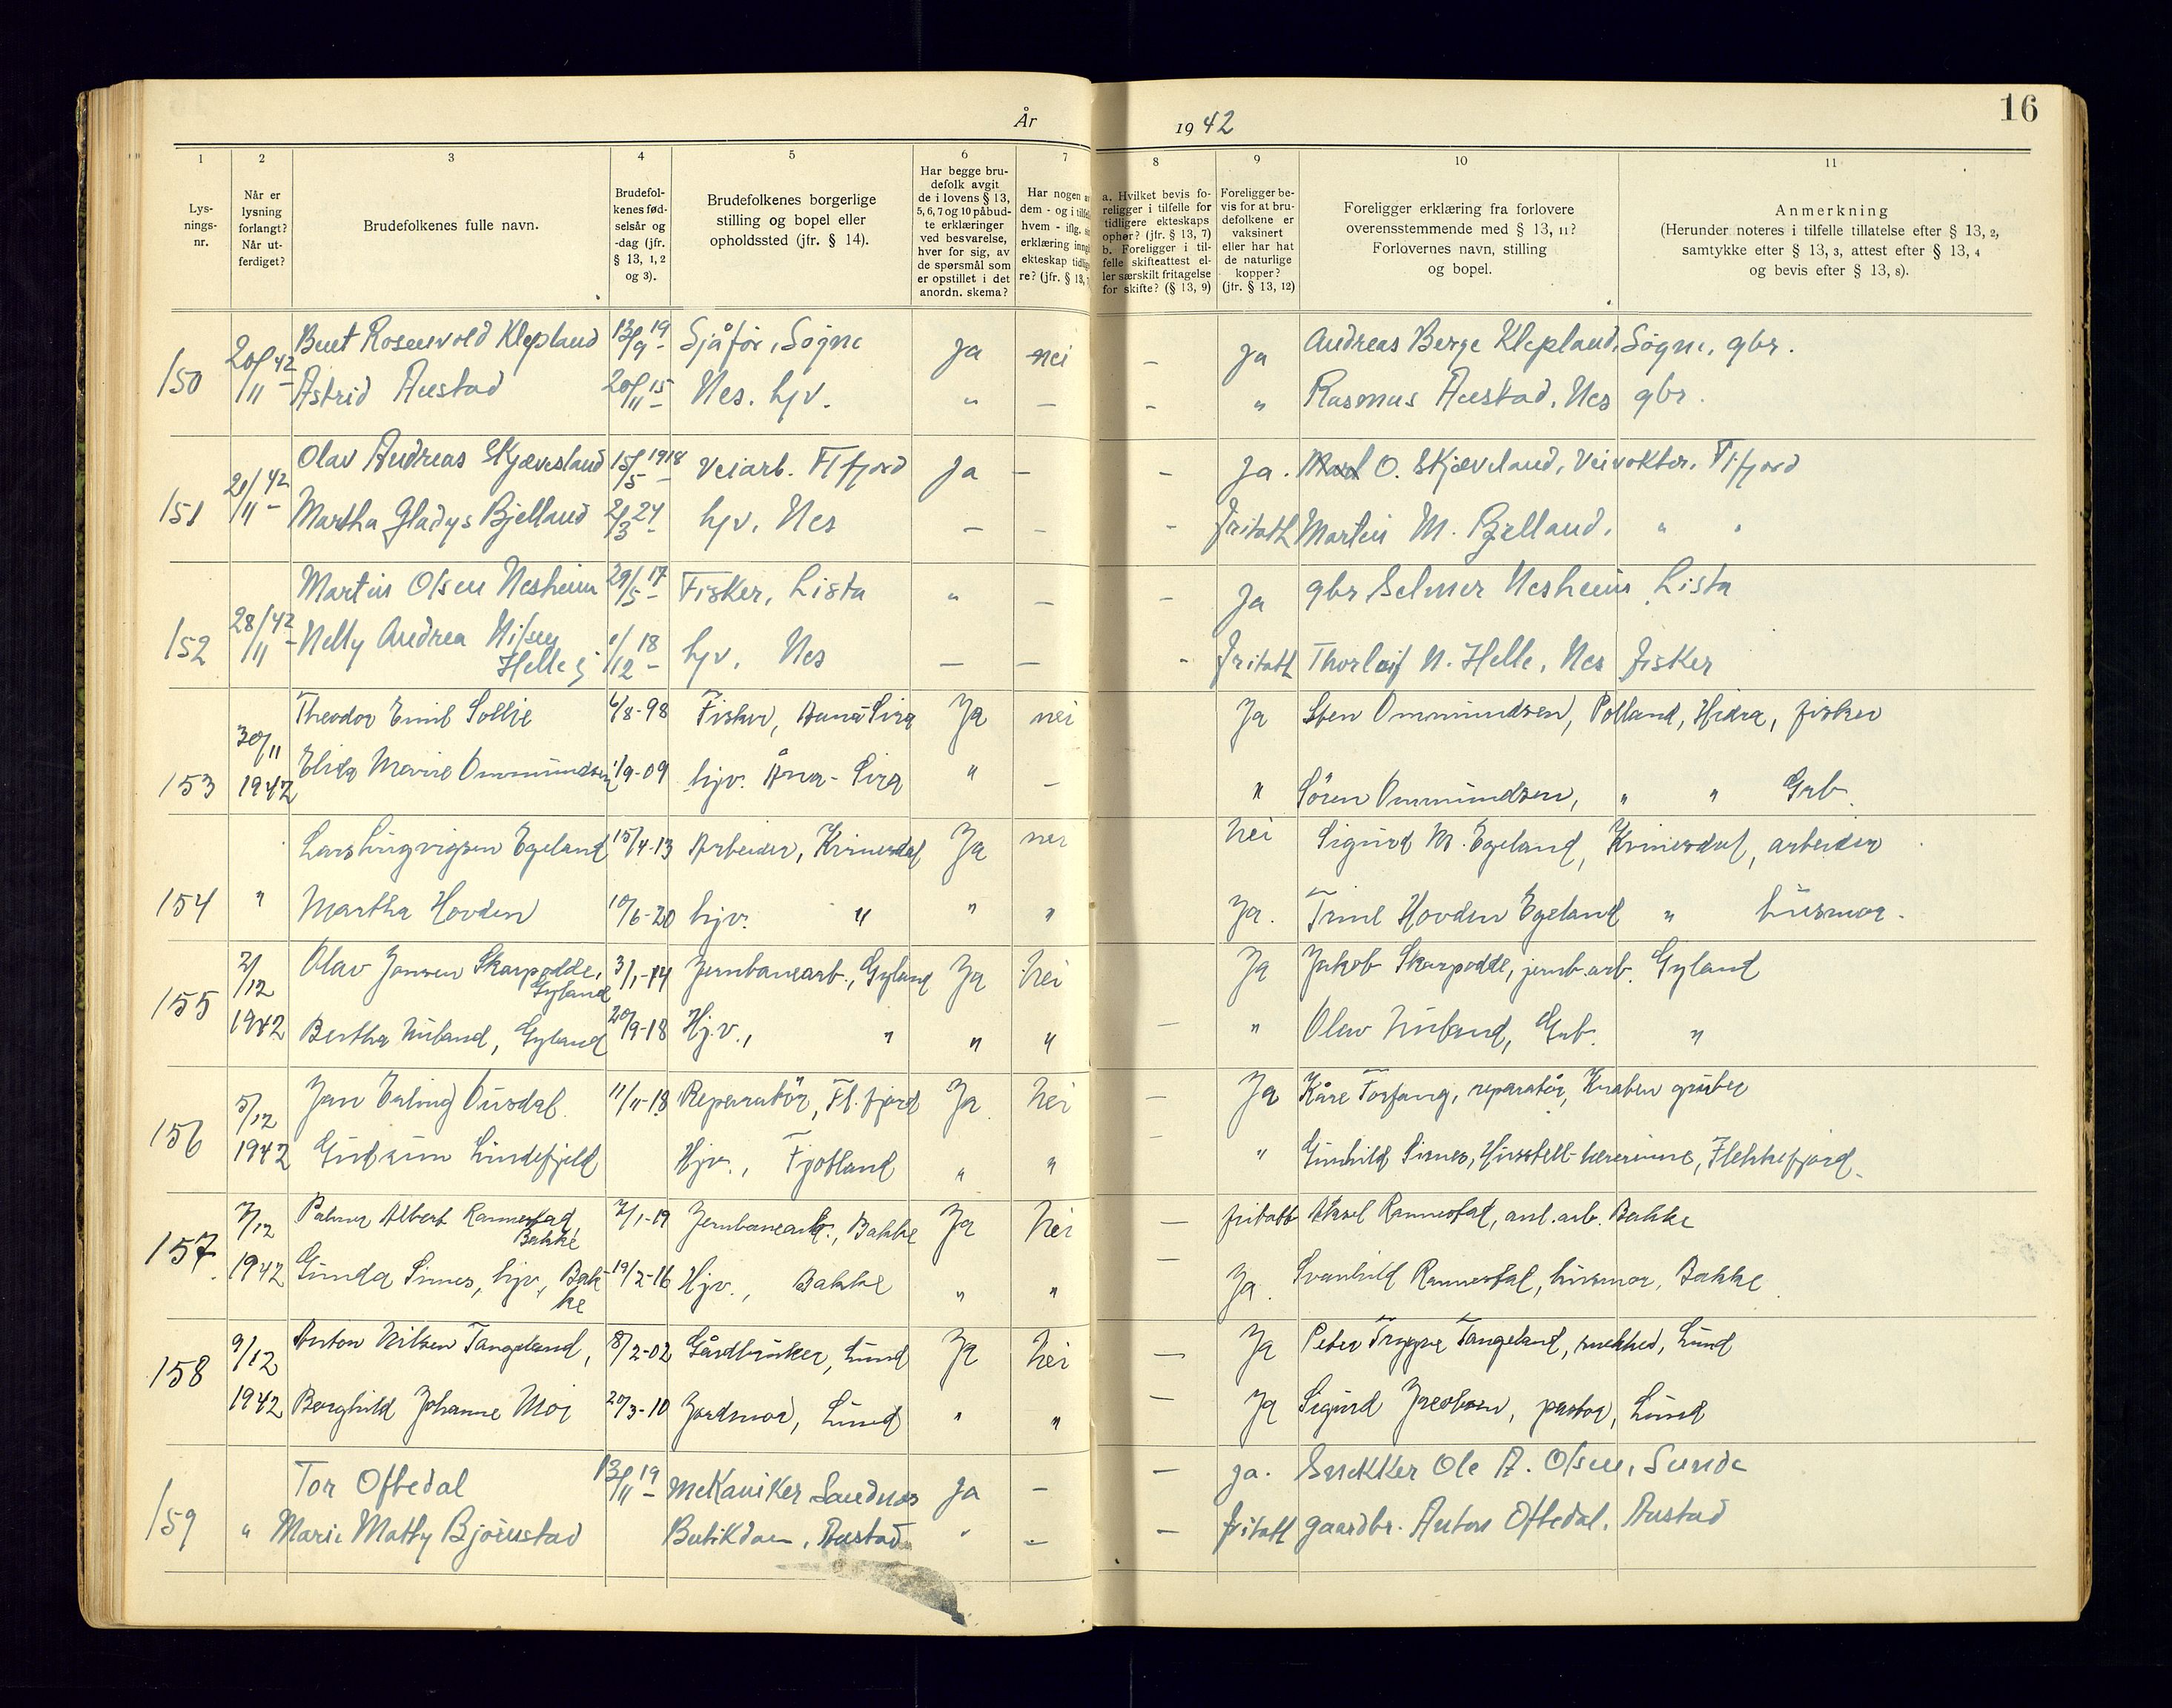 16
År 1942
1 2 3 4 5 6 7 8 9 10 11
Lysnings-nr.
Når er lysning forlangt? Når utferdiget?
Brudefolkenes fulle navn.
Brudefolkenes fødselsår og -dag (jfr. § 13, 1, 2 og 3).
Brudefolkenes borgerlige stilling og bopel eller opholdssted (jfr. § 14).
Har begge brudefolk avgit de i lovens § 13, 5, 6, 7 og 10 påbudte erklæringer ved besvarelse, hver for sig, av de spørsmål som er opstillet i det anordn. skema?
Har nogen av dem - og i tilfelle hvem - iflg. sin erklæring inngått ekteskap tidligere? (jfr. § 13, 7
a. Hvilket bevis foreligger i tilfelle for tidligere ekteskaps ophør? (jfr. § 13, 7) b. Foreligger i tilfelle skifteattest eller særskilt fritagelse for skifte? (§ 13, 9)
Foreligger bevis for at brudefolkene er vaksinert eller har hat de naturlige kopper? (jfr. § 13, 12)
Foreligger erklæring fra forlovere overensstemmende med § 13, 11? Forlovernes navn, stilling og bopel.
Anmerkning (Herunder noteres i tilfelle tillatelse efter § 13, 2, samtykke efter § 13, 3, attest efter § 13, 4 og bevis efter § 13, 8).
Rosenvold Klepland 13/9 19 Sjåfør, Søgne ja nei – ja Andreas Berge Klepland, Søgne, gbr.
150 20/11 42 Astrid Austad 20/11 15 Nes. hjv. " – – " Rasmus Austad, Nes gbr.
Olav Andreas Skjævesland 15/5 1918 Veiarb. Flfjord Ja – – Ja. O. Skjæveland, Veivokter, Flfjord
151 21/11 42 Martha Gladys Bjelland 2/3 24 hjv, Nes – – – fritatt Martin M. Bjelland, " "
Martin Olsen Nesheim 29/5 17 Fisker, Lista " – – Ja gbr Selmer Nesheim Lista
152 28/11 42 Nelly Andrea Nilsen Helle 1/12 18 hjv, Nes – – - fritatt Thorleif N. Helle, Nes fisker
Theodor Emil Sollie 6/8-98 Fisker, Åna-Sira Ja nei Ja Sten Ommundsen, Polland, Hidra, fisker
153 30/11 1942 Elida Marie Ommundsen 1/9-09 hjv. Åna-Sira " – " Sören Ommundsen, " " Grb.
Lars Lingvigsen Egeland 15/4-13 Arbeider, Kvinesdal Ja nei nei Sigurd M. Egeland, Kvinesdal, arbeider
154 " Martha Hovden 10/6-20 hjv. " " " Ja. Trine Hovden Egeland " husmor.
155 2/12 1942 Olav Jansen Skarpodde, Gyland 3/1-14 Jernbanearb., Gyland Ja Nei Ja Jakob Skarpodde, jernb.arb. Gyland
Bertha Nuland, Gyland 20/9-18 Hj.v., " " " – " Olav Nuland, Grb. "
156 5/12 1942 Jan Erling Ousdal. 11/11-18 Reparatör, Fl.fjord Ja. Nei – Ja Kåre Torfang, reparatör, Knaben gruber
Gudrun Lindefjeld Hjv., Fjotland " " – " Gunhild Sirnes, Husstell-lærerinne, Flekkefjord.
157 7/12 1942 Palmer Albert Rannestad, Bakke 7/1-19 Jernbanearb., Bakke Ja Nei – fritatt Aksel Rannestad, anl.arb. Bakke
Gunda Sirnes, hjv., Bakke 19/2-16 Hjv., Bakke " " – Ja. Svanhild Rannestad, husmor, Bakke
158 9/12 1942 Anton Nilsen Tangeland, 8/2-02 Gårdbruker, Lund Ja Nei – Ja Peter Trygve Tangeland, snekker, Lund
Borghild Johanne Moi 20/3-10 Jordmor, Lund " " – Ja Sigurd Jacobsen, pastor, Lund
Tor Oftedal 13/11 19 Mekaniker Sandnes Ja – – ja. Snekker Ole A. Olsen, Sunde
159 " Marie Mathy Björnstad Butikdam, Austad " – – fritatt gaardbr. Anton Oftedal, Austad